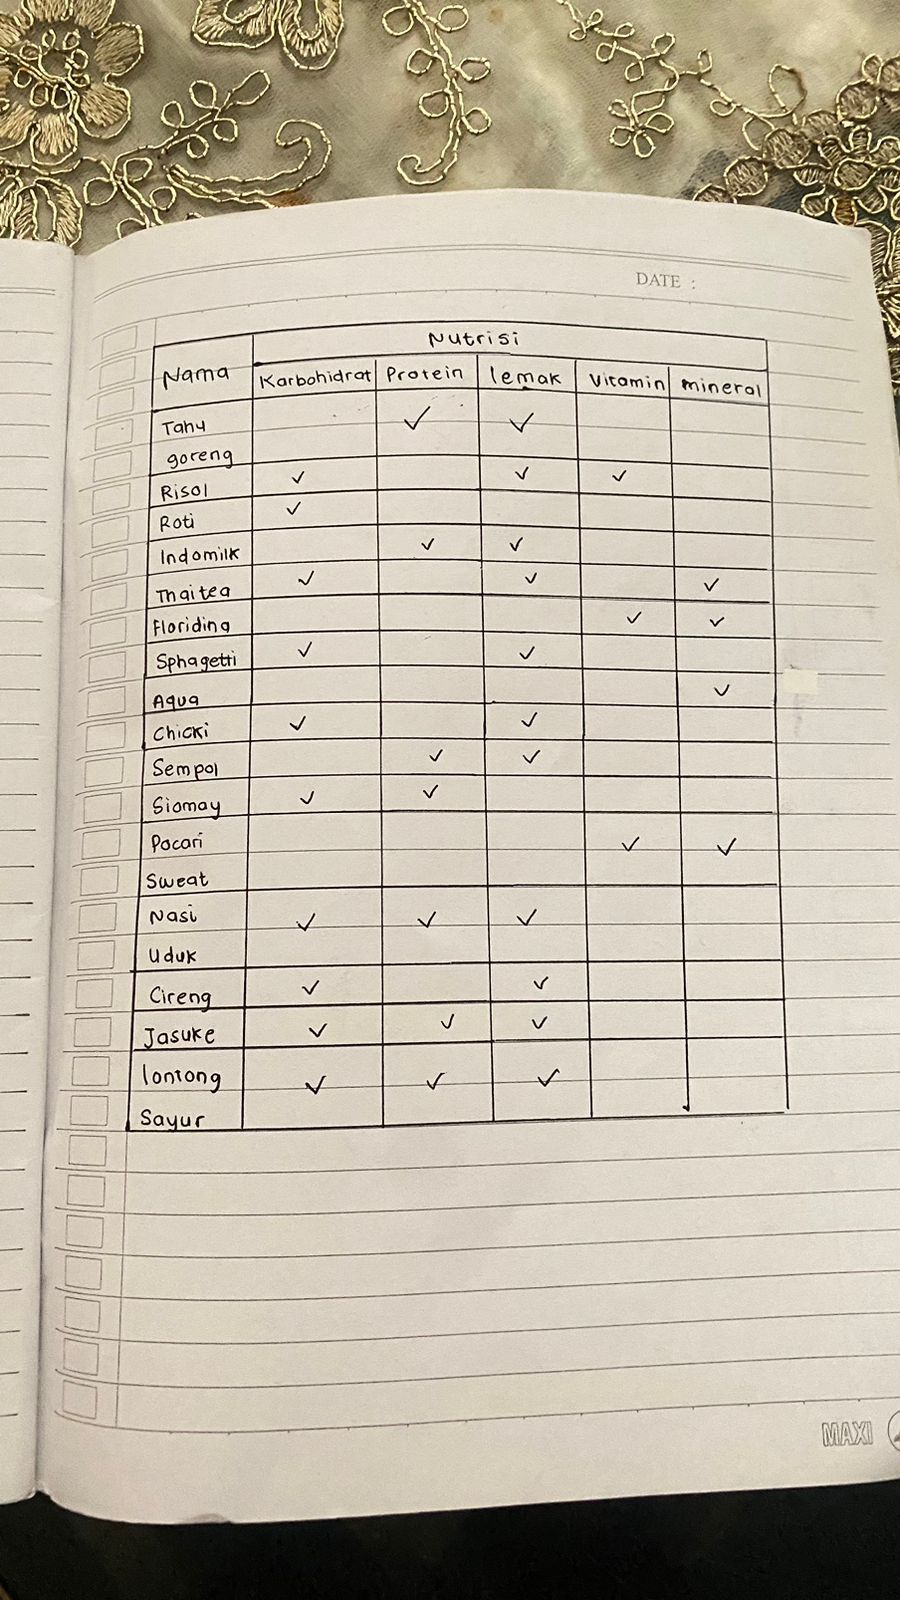 DATE :
Nutrisi
Nama Karbohidrat Protein lemak Vitamin mineral
Tahu ✓ ✓
goreng
Risol ✓ ✓ ✓
Roti ✓
Indomilk ✓ ✓
Thai tea ✓ ✓ ✓
Floridina ✓ ✓
Sphagetti ✓ ✓
Aqua ✓
Chicki ✓ ✓
Sempol ✓ ✓
Siomay ✓ ✓
Pocari ✓ ✓
Sweat
Nasi ✓ ✓ ✓
Uduk
Cireng ✓ ✓
Jasuke ✓ ✓ ✓
lontong ✓ ✓ ✓
Sayur
MAXI